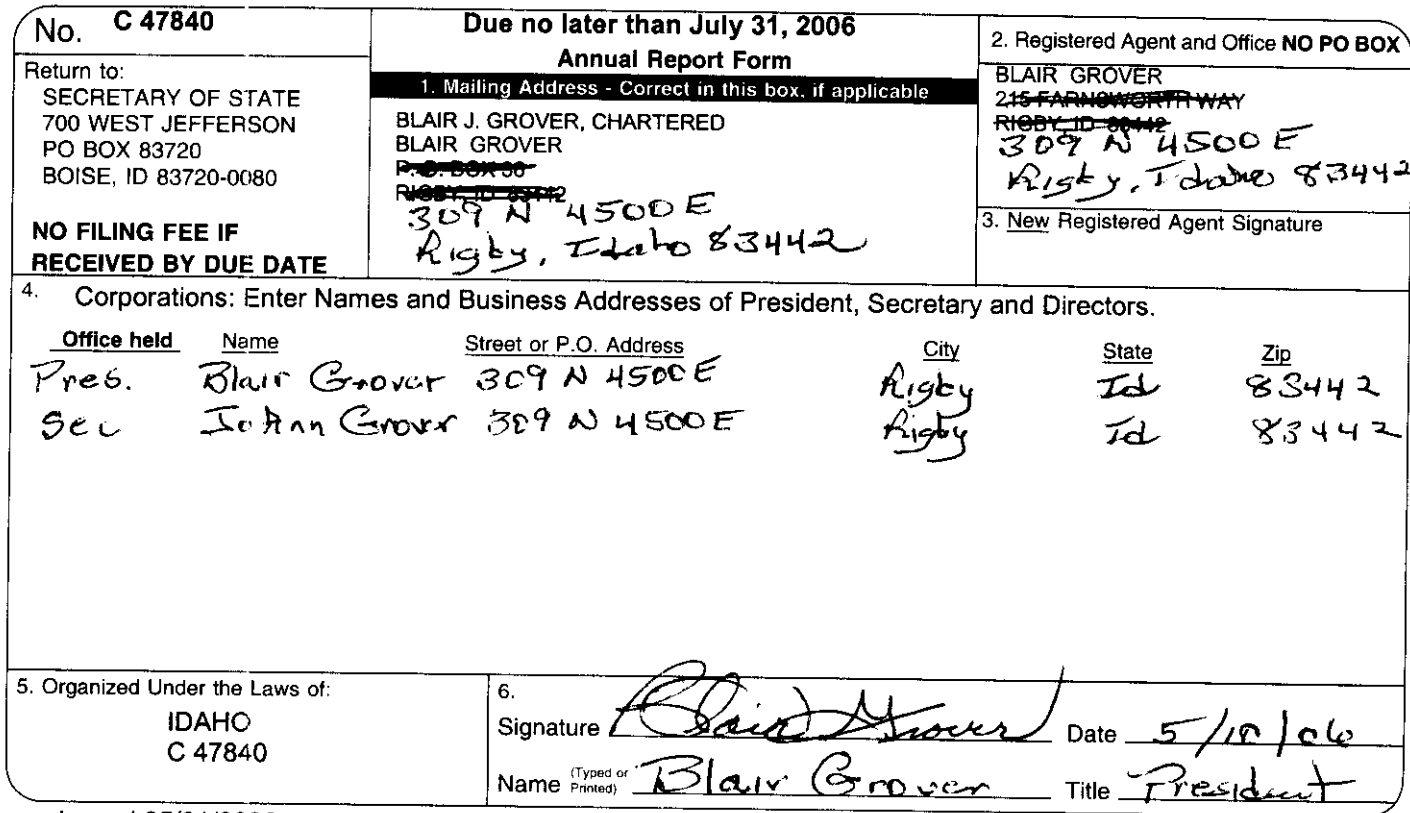 No. C 47840
Return to:
SECRETARY OF STATE
700 WEST JEFFERSON
PO BOX 83720
BOISE, ID 83720-0080
NO FILING FEE IF
RECEIVED BY DUE DATE
Due no later than July 31, 2006
Annual Report Form
1. Mailing Address - Correct in this box, if applicable
BLAIR J. GROVER, CHARTERED
BLAIR GROVER
P. O. BOX
RIGBY, ID 83442
309 N 4500 E
Rigby, Idaho 83442
2. Registered Agent and Office NO PO BOX
BLAIR GROVER
215 FARNSWORTH WAY
RIGBY, ID 83442
309 N 4500 E
Rigby, Idaho 83442
3. New Registered Agent Signature
4. Corporations: Enter Names and Business Addresses of President, Secretary and Directors.
Office held Name Street or P.O. Address City State Zip
Pres. Blair Grover 309 N 4500 E Rigby Id 83442
Sec JoAnn Grover 309 N 4500 E Rigby Id 83442
5. Organized Under the Laws of:
IDAHO
C 47840
6.
Signature Blair Grover Date 5/10/06
Name (Typed or Printed) Blair Grover Title President